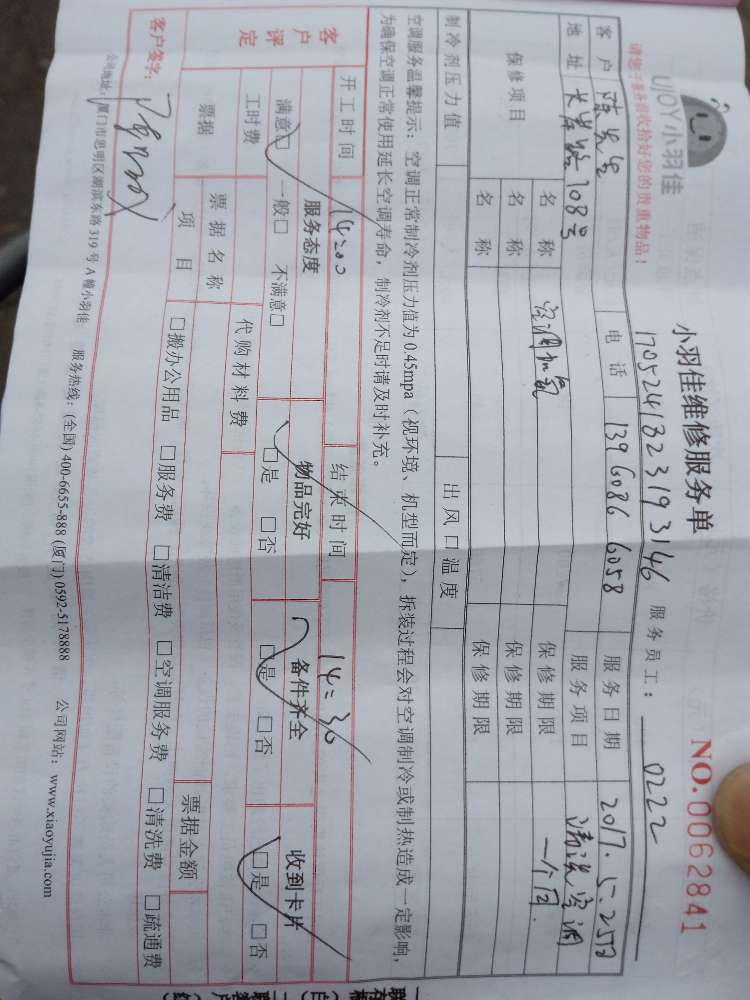 UJOY小羽佳
小羽佳维修服务单
NO.0062841
请您于服务前收拾好您的贵重物品!
1705241823193146 服务员工: 0222
客户 陈先生 电话 139 6086 6058 服务日期 2017.5.25日
地址 108号 服务项目 清洗空调
保修项目 名称 空调加氟 保修期限 一个月.
名称 保修期限
名称 保修期限
制冷剂压力值 出风口温度
空调服务温馨提示: 空调正常制冷剂压力值为0.45mpa(视环境、机型而定),拆装过程会对空调制冷或制热造成一定影响,
为确保空调正常使用延长空调寿命,制冷剂不足时请及时补充。
开工时间 14:00 结束时间 14:30
客户评定 服务态度 物品完好 备件齐全 收到卡片
满意□ 一般□ 不满意□ □是 □否 □是 □否 □是 □否
工时费 代购材料费
票据 票据名称 票据金额
项目 □搬办公用品 □服务费 □清洁费 □空调服务费 □清洗费 □疏通费
客户签字:
公司地址: 厦门市思明区湖滨东路319号A幢小羽佳 服务热线: (全国) 400-6655-888 (厦门) 0592-5178888 公司网站: www.xiaoyujia.com